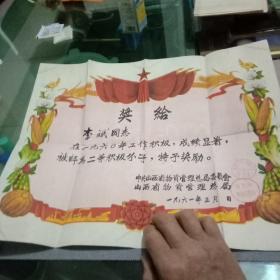 奖给
李斌同志
在一九六〇年工作积极，成绩显著，
被评为二等积极分子，特予奖励。
中共山西省物资管理总局委员会
山西省物资管理总局
一九六一年三月 日